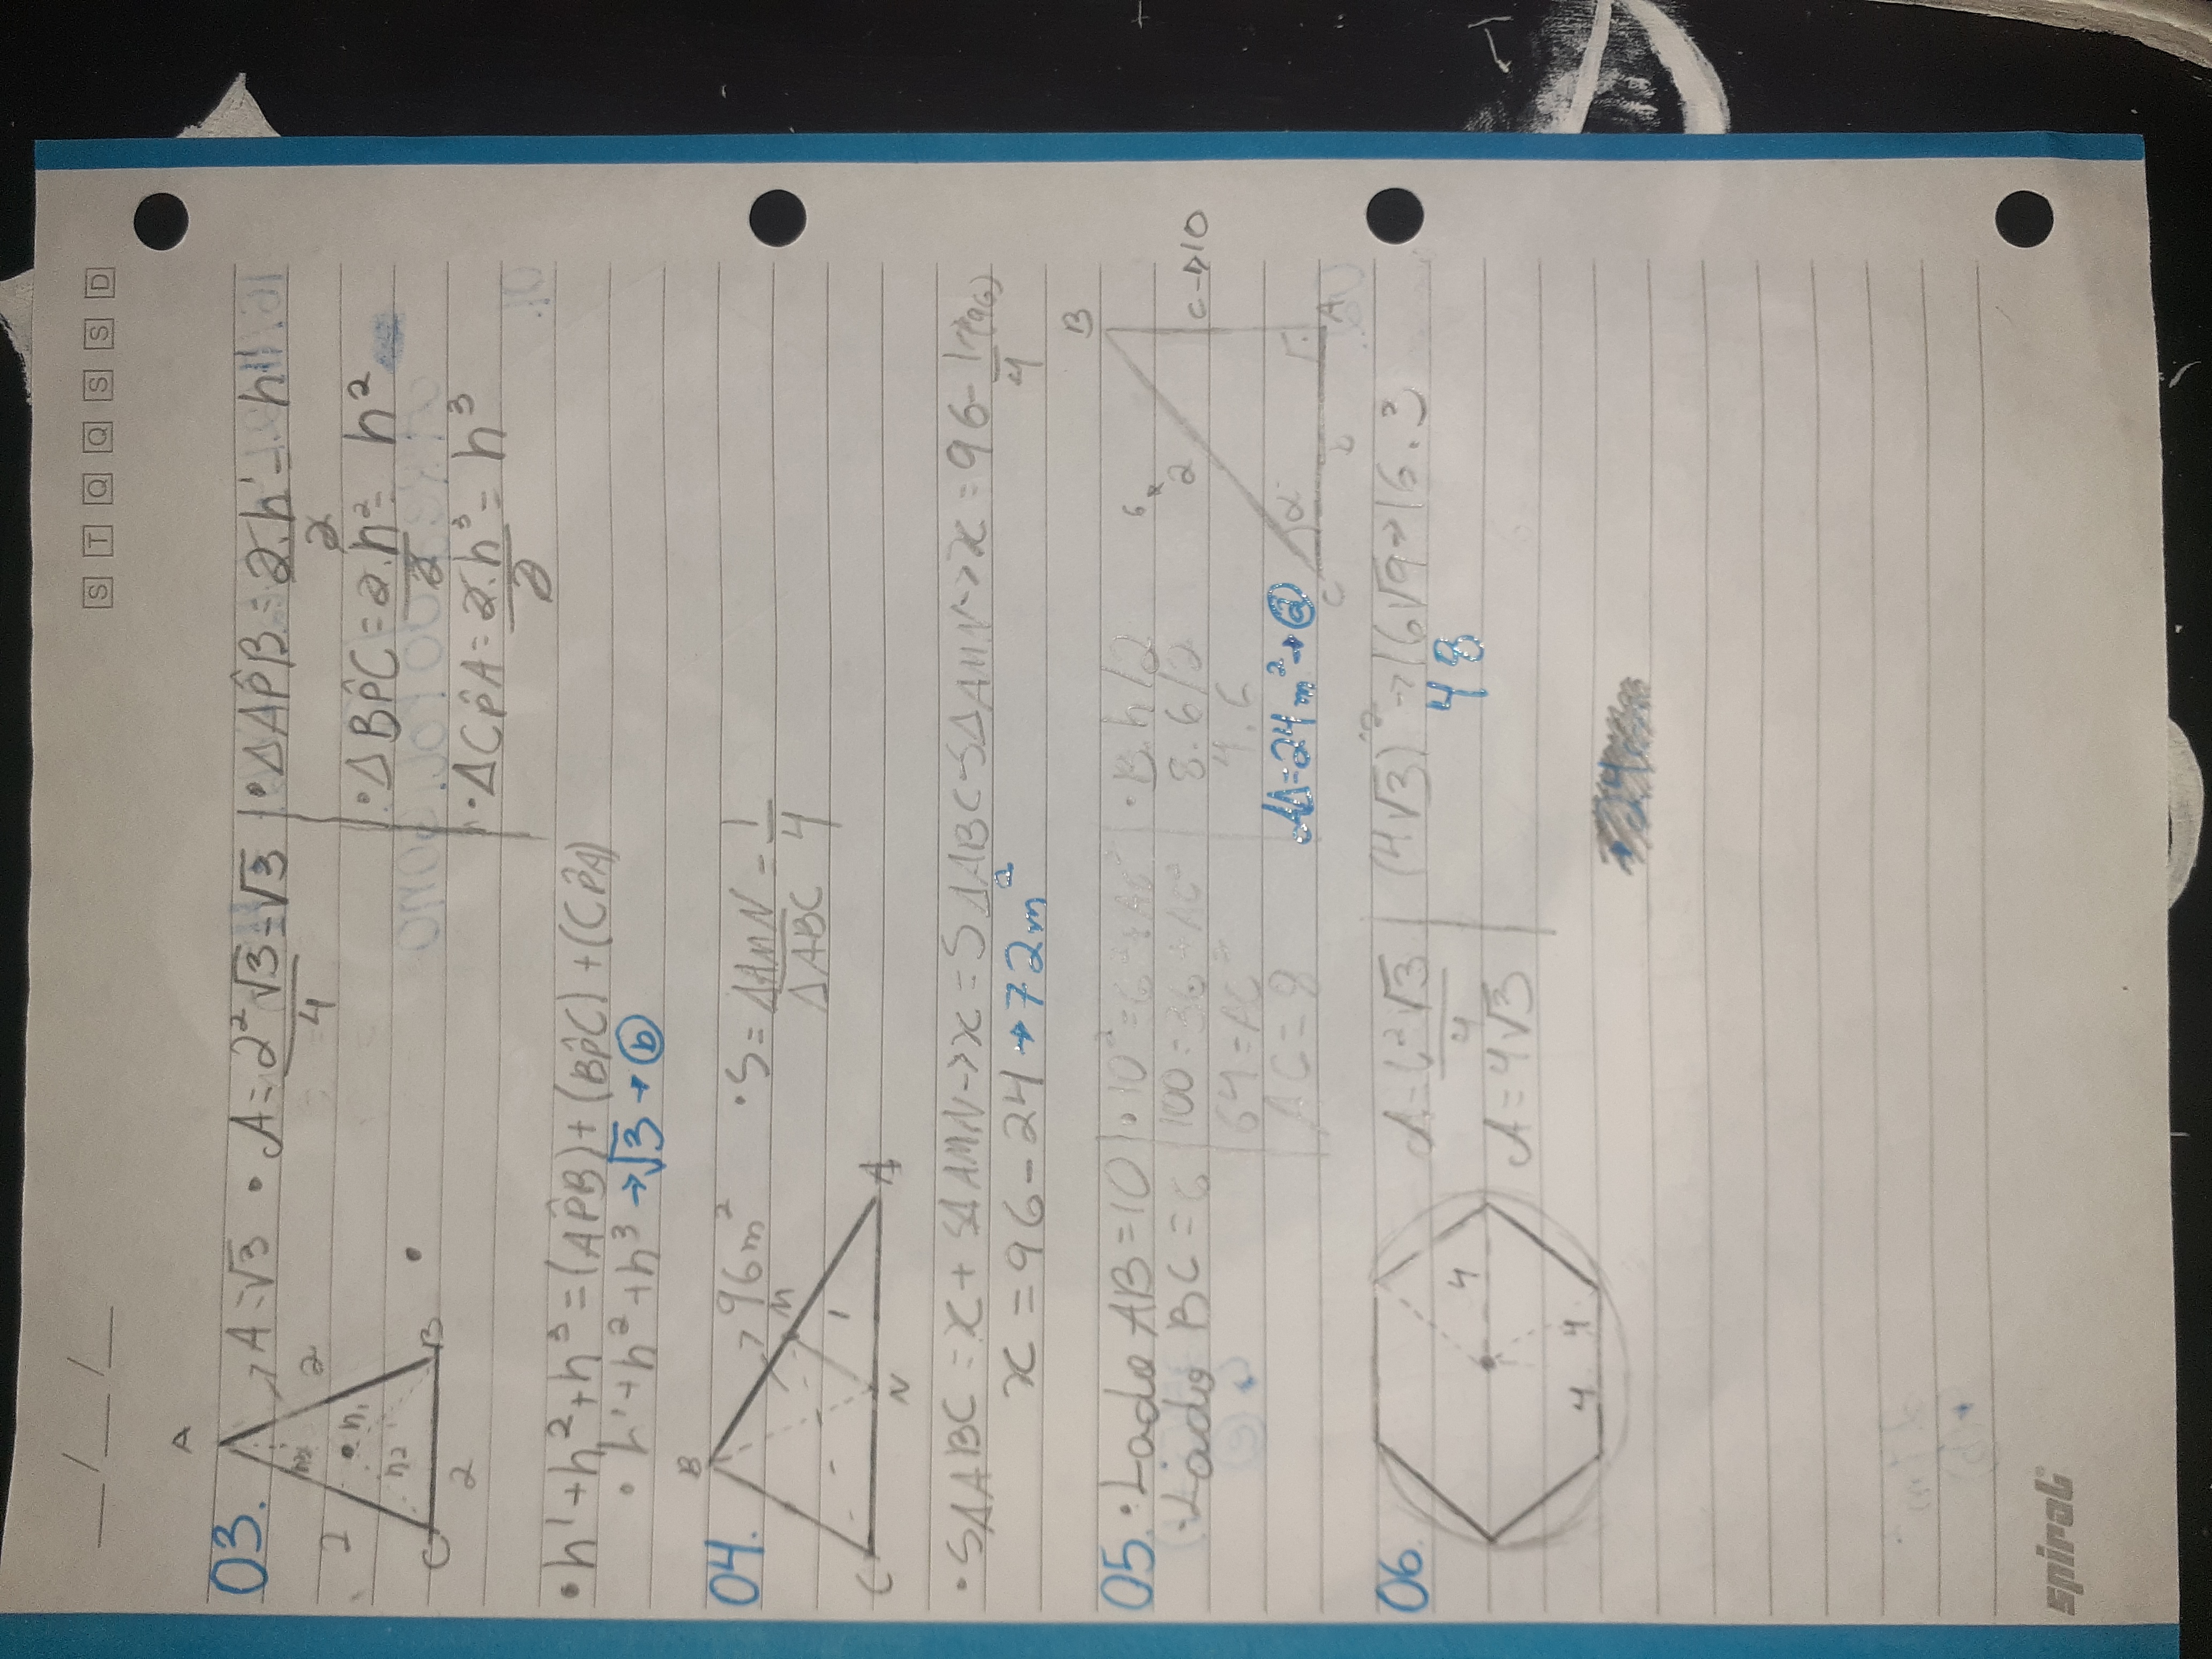 __/__/__
S T Q Q S S D
A
03. A=√3 • A=2²√3/4=√3 • ΔAP̂B=2.h¹/2= h¹
h3 2 2 h1 h2
C B 2
• ΔBP̂C=2.h²/2= h²
• ΔCP̂A=2.h³/2= h³
• h¹+h²+h³=(AP̂B)+(BP̂C)+(CP̂A)
• h¹+h²+h³→√3→ⓑ
B
04. 96m² • S=ΔAMN/ΔABC=1/4
M 1
C N A
• SΔABC=x+SΔAMN→x=SΔABC-SΔAMN→x=96-1/4(96)
x=96-24→72m²
B
05. • Lado AB=10 • 10²=6²+AC² • B.h/2 6 2
• Lado BC=6 100=36+AC² 8.6/2 C→10
64=AC² 4.6
AC=8 AΔ=24m²→ⓐ α
C b A
06. A=l²√3/4 (4√3)²→16√9→16.3
4 48
A=4√3
4 4
spiral